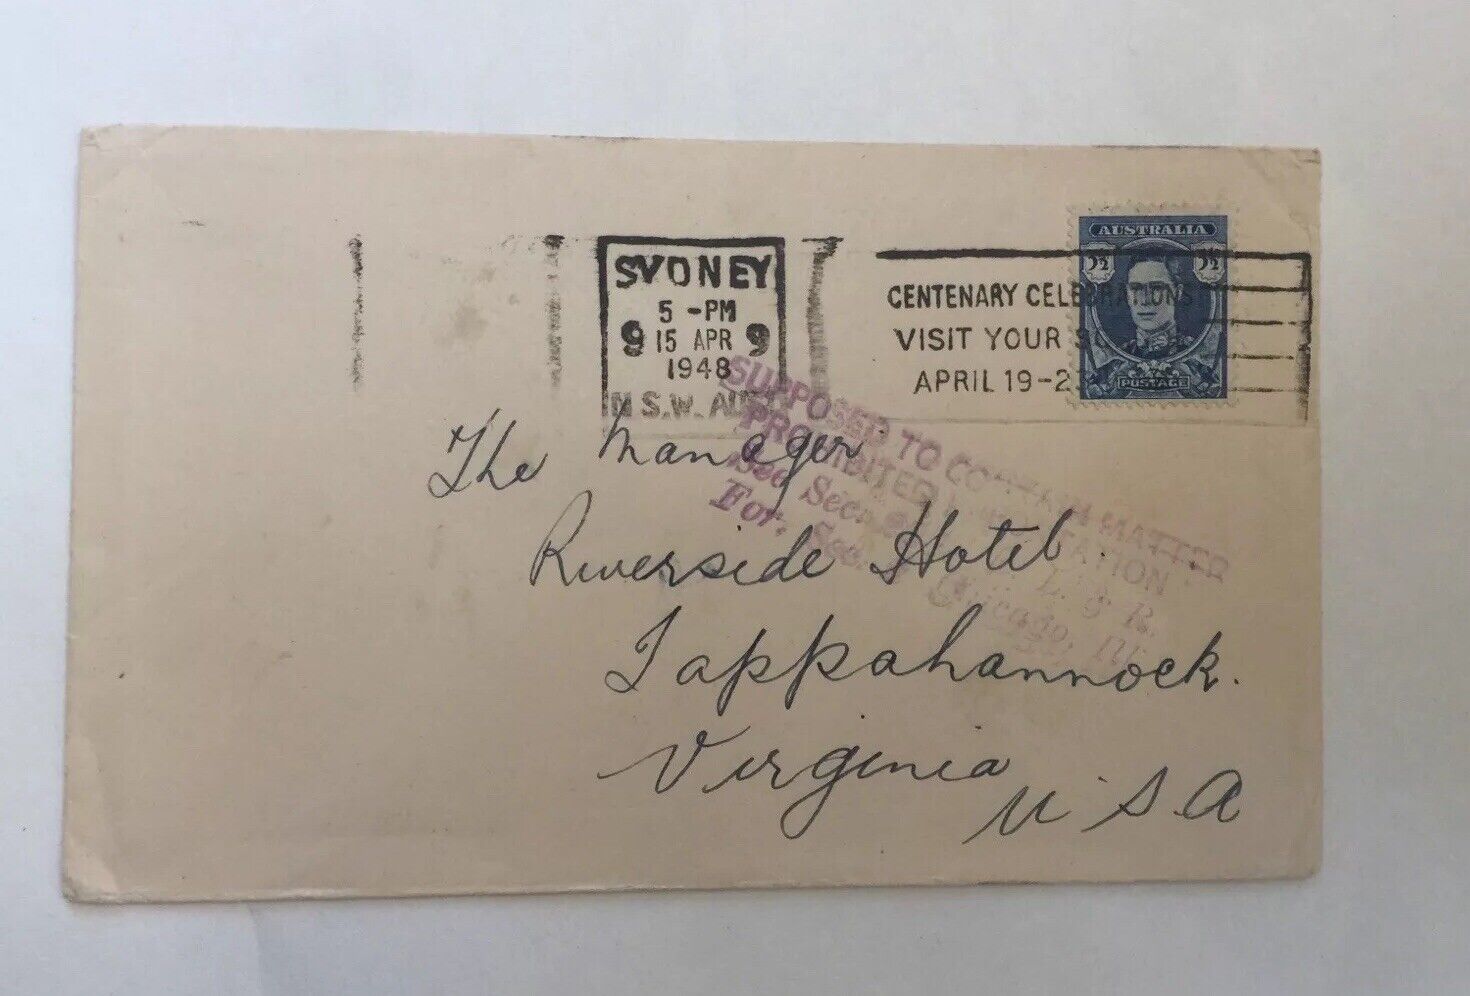 SYDNEY
5 -PM
9 15 APR 9
1948
N.S.W. AUST
CENTENARY CELEBRATIONS
VISIT YOUR
APRIL 19-2
AUSTRALIA
2½ 2½
POSTAGE
SUPPOSED TO CONTAIN MATTER
PROHIBITED IMPORTATION
See Sec.
L. & R.
For. Sec. Chicago, Ill.
The Manager
Riverside Hotel.
Tappahannock.
Virginia
U S A